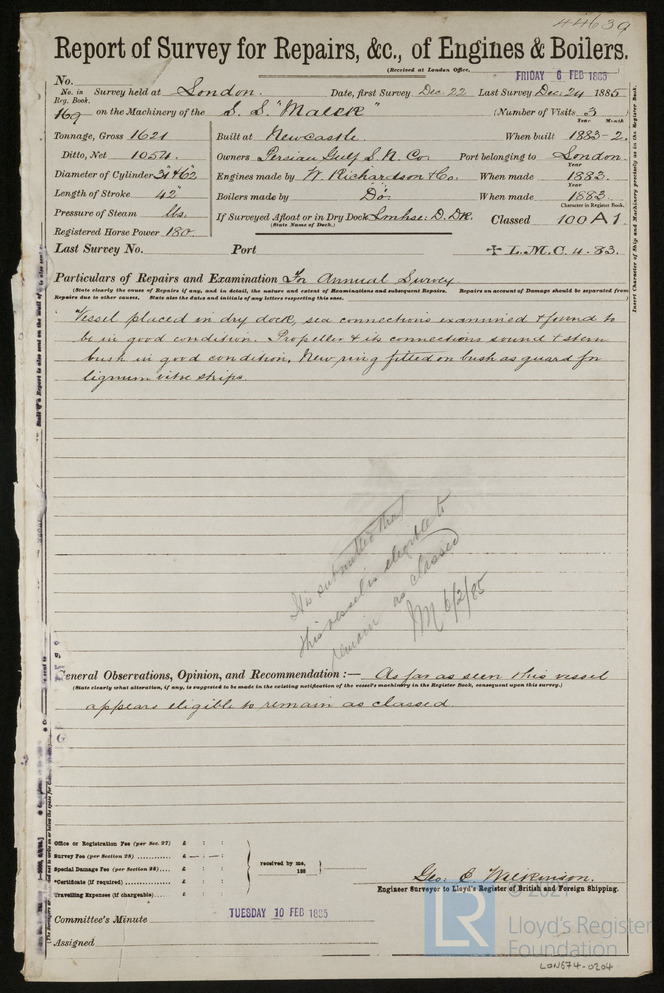 44639
Report of Survey for Repairs, &c., of Engines & Boilers.
(Received at London Office, FRIDAY 6 FEB 1885
No.
No. in Reg. Book. Survey held at London. Date, first Survey Dec. 22 Last Survey Dec. 24 1885
169 on the Machinery of the S. S. "Malek" (Number of Visits 3
Year Month
Tonnage, Gross 1621 Built at Newcastle When built 1883-2.
Ditto, Net 1054. Owners Persian Gulf S. N. Co. Port belonging to London.
Diameter of Cylinder 31" & 62" Engines made by W. Richardson & Co. When made 1883.
Length of Stroke 42" Boilers made by Do. When made 1883.
Pressure of Steam lbs. If Surveyed Afloat or in Dry Dock Lmhse: D. Dk. Classed 100 A 1.
(State Name of Dock.) Character in Register Book.
Registered Horse Power 180
Last Survey No. Port L. M. C. 4. 83.
Particulars of Repairs and Examination For Annual Survey
(State clearly the cause of Repairs if any, and in detail, the nature and extent of Examinations and subsequent Repairs. Repairs on account of Damage should be separated from
Repairs due to other causes. State also the dates and initials of any letters respecting this case.)
Vessel placed in dry dock, sea connections examined & found to
be in good condition. Propeller & its connections sound & stern
bush in good condition. New ring fitted on bush as guard for
lignum vitæ strips.
It is submitted that
this vessel is eligible to
remain as classed
6/2/85
General Observations, Opinion, and Recommendation :— As far as seen this vessel
(State clearly what alteration, if any, is suggested to be made in the existing notification of the vessel's machinery in the Register Book, consequent upon this survey.)
appears eligible to remain as classed.
Office or Registration Fee (per Sec. 27) £ : :
Survey Fee (per Section 28) £ : :
Special Damage Fee (per Section 28) £ : :
*Certificate (if required) £ : :
Travelling Expenses (if chargeable) £ : :
received by me,
188
Geo. C. Wilkinson.
Engineer Surveyor to Lloyd's Register of British and Foreign Shipping.
Committee's Minute TUESDAY 10 FEB 1885
Assigned
Insert Character of Ship and Machinery precisely as in the Register Book.
© 2021
LR
Lloyd's Register
Foundation
LON674-0204